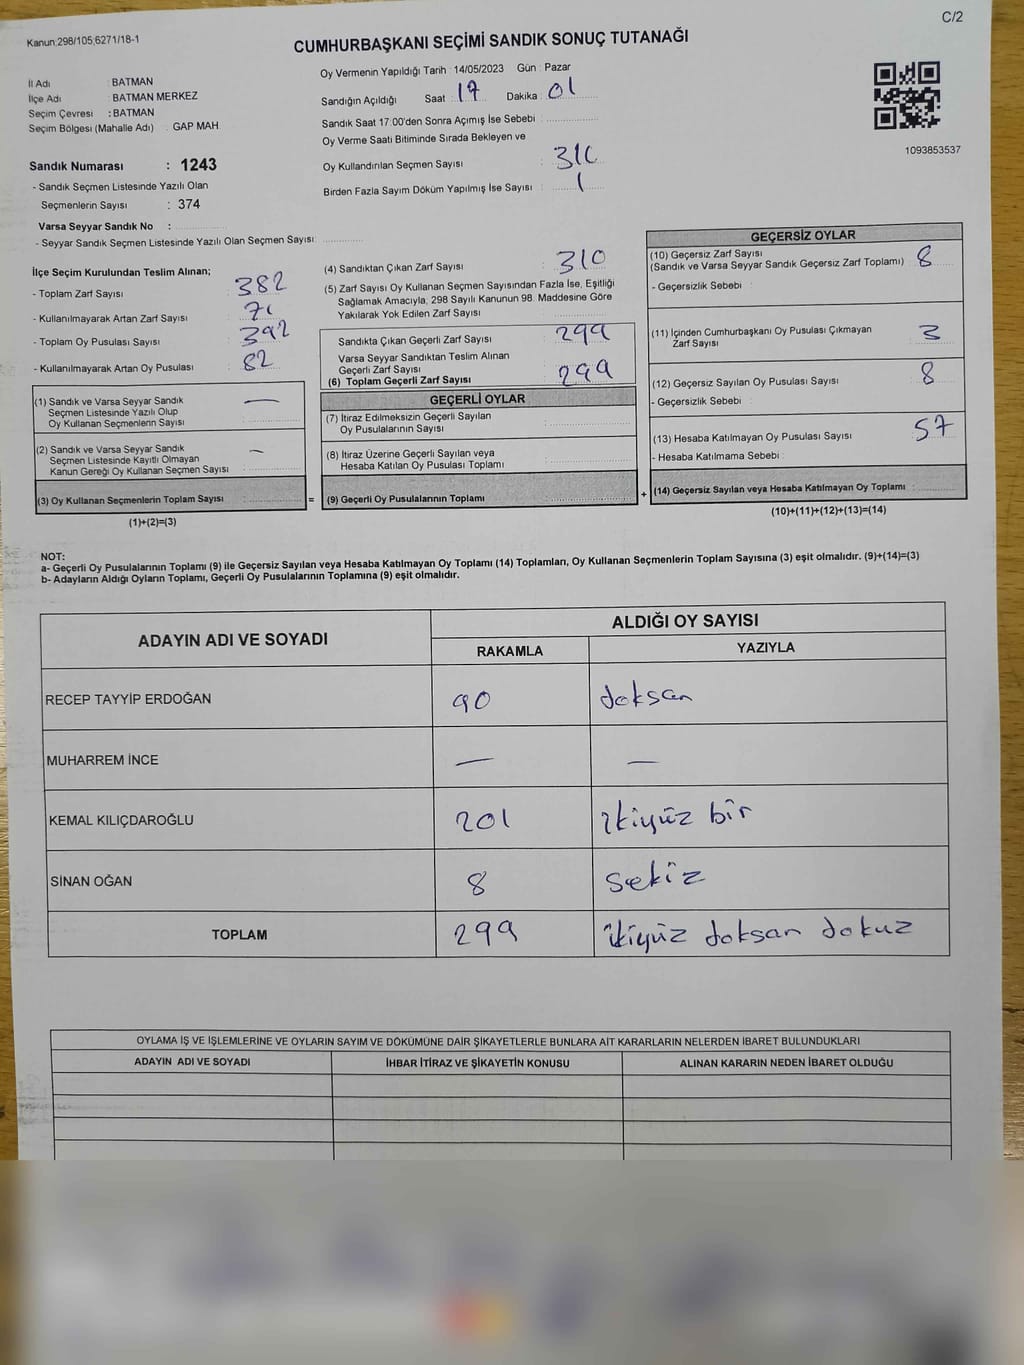 C/2
Kanun;298/105;6271/18-1
CUMHURBAŞKANI SEÇİMİ SANDIK SONUÇ TUTANAĞI
İl Adı : BATMAN
İlçe Adı : BATMAN MERKEZ
Seçim Çevresi : BATMAN
Seçim Bölgesi (Mahalle Adı) : GAP MAH.
Sandık Numarası : 1243
- Sandık Seçmen Listesinde Yazılı Olan
Seçmenlerin Sayısı : 374
Varsa Seyyar Sandık No :
- Seyyar Sandık Seçmen Listesinde Yazılı Olan Seçmen Sayısı:
Oy Vermenin Yapıldığı Tarih : 14/05/2023 Gün : Pazar
Sandığın Açıldığı Saat : 17 Dakika : 01
Sandık Saat 17:00'den Sonra Açımış İse Sebebi :
Oy Verme Saati Bitiminde Sırada Bekleyen ve
Oy Kullandırılan Seçmen Sayısı :
Birden Fazla Sayım Döküm Yapılmış İse Sayısı : 1
1093853537
İlçe Seçim Kurulundan Teslim Alınan;
- Toplam Zarf Sayısı : 382
- Kullanılmayarak Artan Zarf Sayısı :
- Toplam Oy Pusulası Sayısı : 392
- Kullanılmayarak Artan Oy Pusulası : 82
(1) Sandık ve Varsa Seyyar Sandık
Seçmen Listesinde Yazılı Olup
Oy Kullanan Seçmenlerin Sayısı : —
(2) Sandık ve Varsa Seyyar Sandık
Seçmen Listesinde Kayıtlı Olmayan
Kanun Gereği Oy Kullanan Seçmen Sayısı : —
(3) Oy Kullanan Seçmenlerin Toplam Sayısı :
(1)+(2)=(3)
=
(4) Sandıktan Çıkan Zarf Sayısı : 310
(5) Zarf Sayısı Oy Kullanan Seçmen Sayısından Fazla İse, Eşitliği
Sağlamak Amacıyla, 298 Sayılı Kanunun 98. Maddesine Göre
Yakılarak Yok Edilen Zarf Sayısı :
Sandıkta Çıkan Geçerli Zarf Sayısı : 299
Varsa Seyyar Sandıktan Teslim Alınan
Geçerli Zarf Sayısı :
(6) Toplam Geçerli Zarf Sayısı : 299
GEÇERLİ OYLAR
(7) İtiraz Edilmeksizin Geçerli Sayılan
Oy Pusulalarının Sayısı :
(8) İtiraz Üzerine Geçerli Sayılan veya
Hesaba Katılan Oy Pusulası Toplamı :
(9) Geçerli Oy Pusulalarının Toplamı :
+
GEÇERSİZ OYLAR
(10) Geçersiz Zarf Sayısı
(Sandık ve Varsa Seyyar Sandık Geçersiz Zarf Toplamı) : 8
- Geçersizlik Sebebi :
(11) İçinden Cumhurbaşkanı Oy Pusulası Çıkmayan
Zarf Sayısı : 3
(12) Geçersiz Sayılan Oy Pusulası Sayısı : 8
- Geçersizlik Sebebi :
(13) Hesaba Katılmayan Oy Pusulası Sayısı : 57
- Hesaba Katılmama Sebebi :
(14) Geçersiz Sayılan veya Hesaba Katılmayan Oy Toplamı :
(10)+(11)+(12)+(13)=(14)
NOT:
a- Geçerli Oy Pusulalarının Toplamı (9) ile Geçersiz Sayılan veya Hesaba Katılmayan Oy Toplamı (14) Toplamları, Oy Kullanan Seçmenlerin Toplam Sayısına (3) eşit olmalıdır. (9)+(14)=(3)
b- Adayların Aldığı Oyların Toplamı, Geçerli Oy Pusulalarının Toplamına (9) eşit olmalıdır.
ADAYIN ADI VE SOYADI
ALDIĞI OY SAYISI
RAKAMLA YAZIYLA
RECEP TAYYİP ERDOĞAN 90 doksan
MUHARREM İNCE — —
KEMAL KILIÇDAROĞLU 201 ikiyüz bir
SİNAN OĞAN 8 sekiz
TOPLAM 299 ikiyüz doksan dokuz
OYLAMA İŞ VE İŞLEMLERİNE VE OYLARIN SAYIM VE DÖKÜMÜNE DAİR ŞİKAYETLERLE BUNLARA AİT KARARLARIN NELERDEN İBARET BULUNDUKLARI
ADAYIN ADI VE SOYADI İHBAR İTİRAZ VE ŞİKAYETİN KONUSU ALINAN KARARIN NEDEN İBARET OLDUĞU